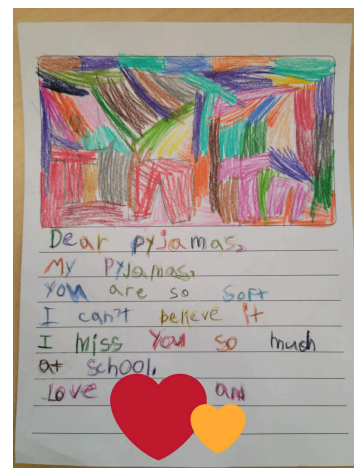 Dear pyjamas,
My PyJamas,
you are so soft
I can't believe It
I miss you so much
at school.
Love